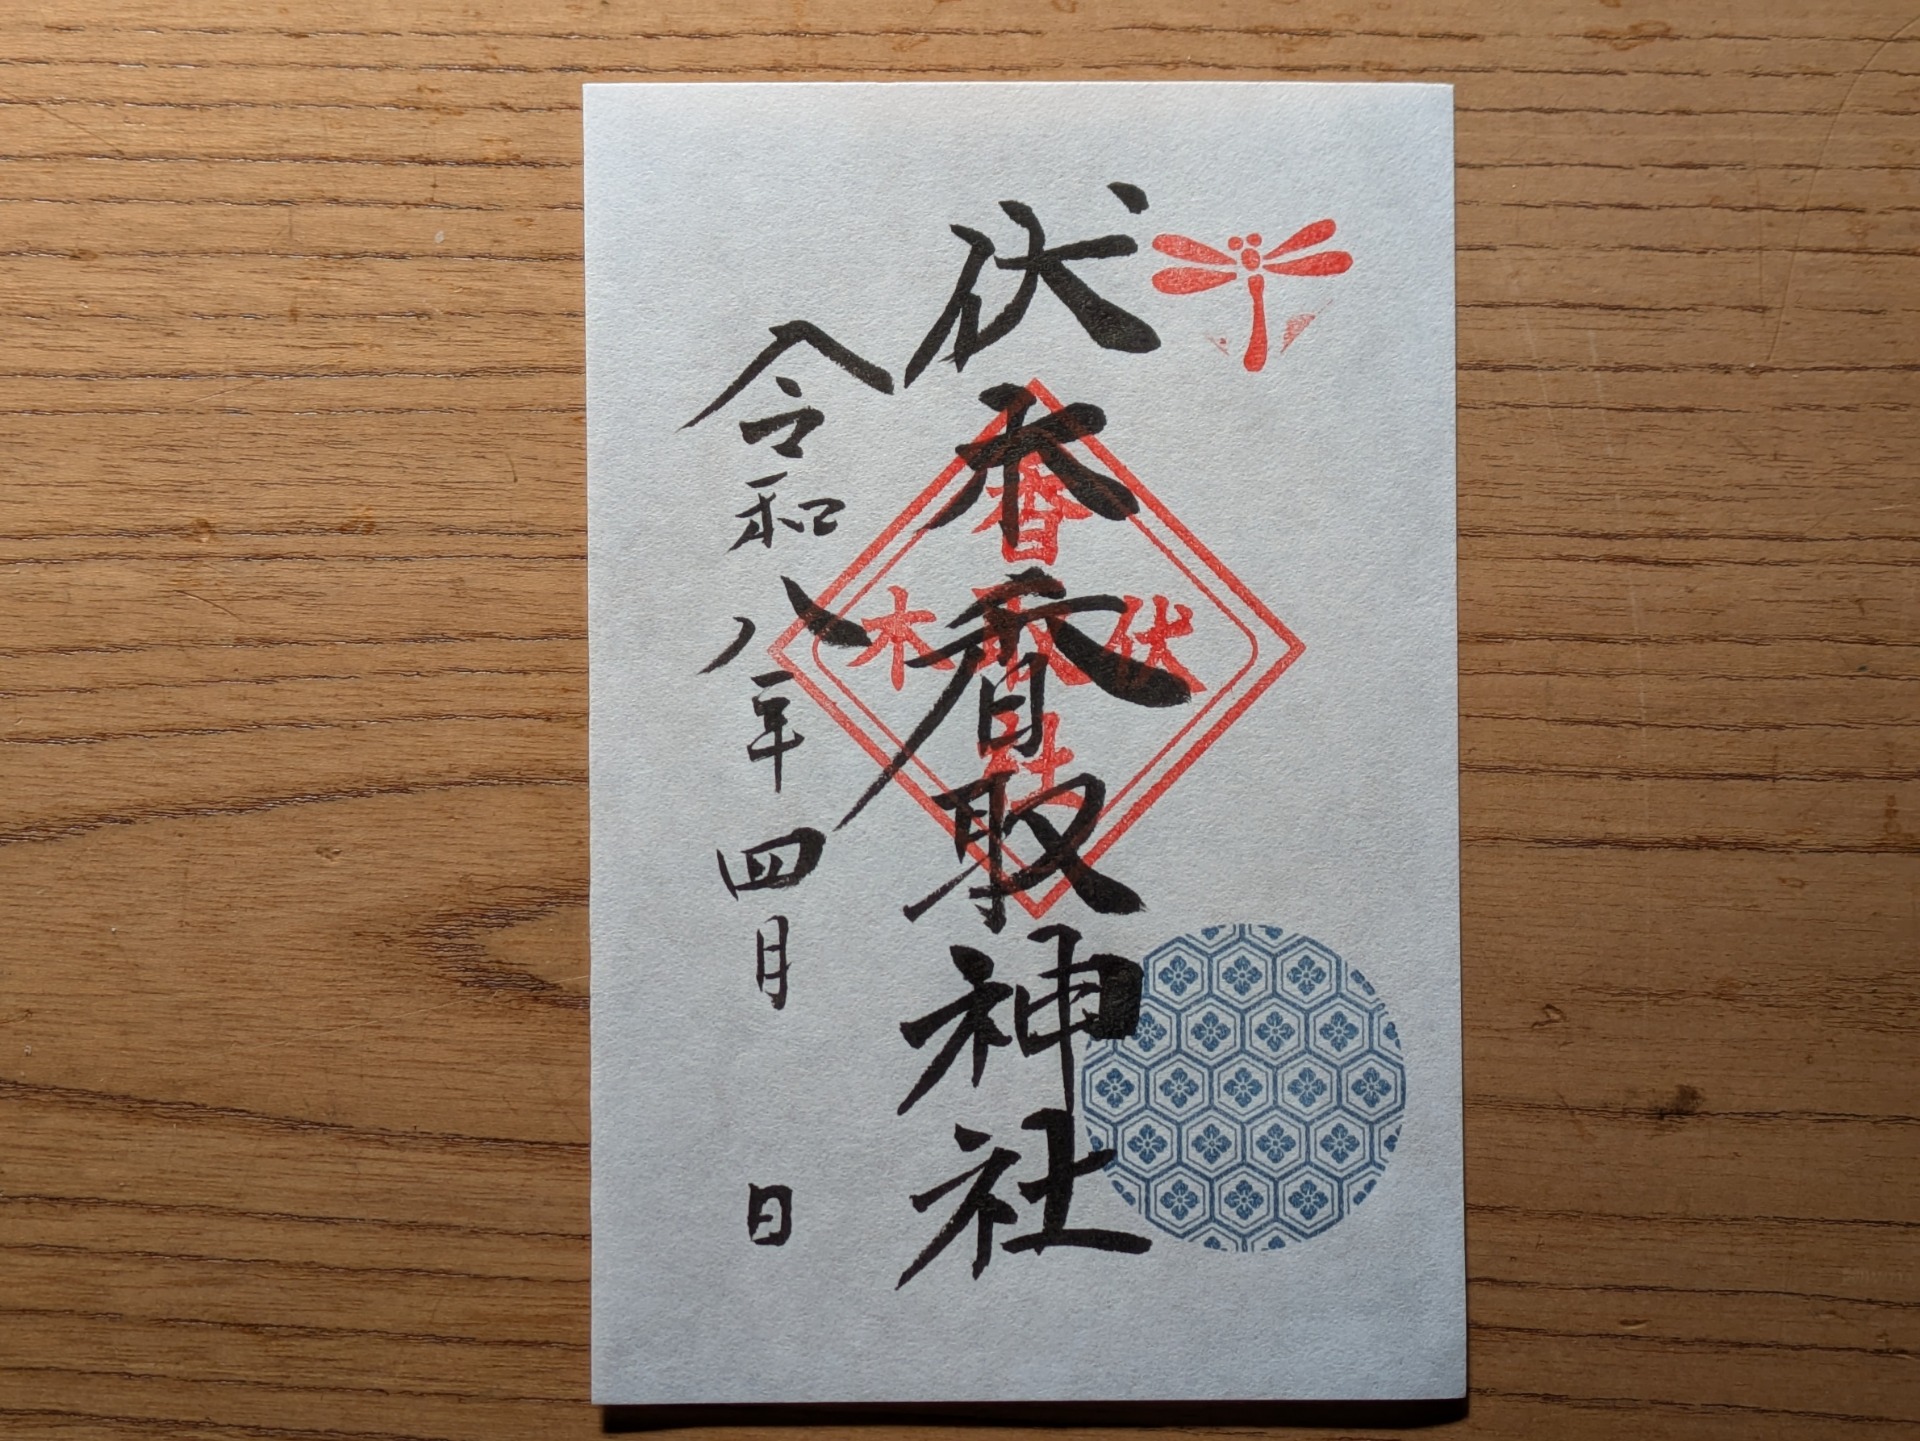 伏木香取神社
香
伏取木
社
令和八年四月 日